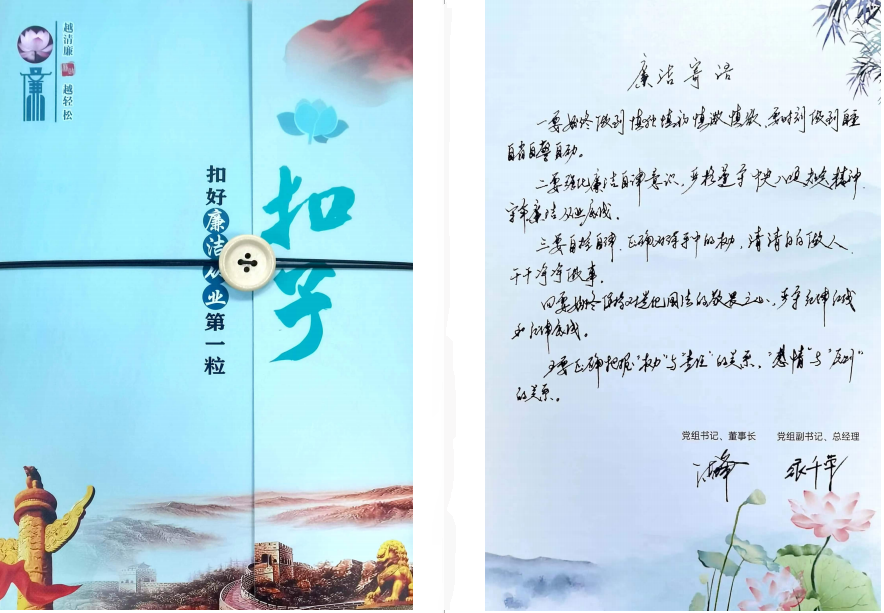 越清廉
越轻松
廉
扣好廉洁从业第一粒
扣子
廉洁寄语
一要始终做到慎独慎初慎微慎欲，要时刻做到自重
自省自警自励。
二要强化廉洁自律意识，严格遵守中央八项规定精神，
守牢廉洁从业底线。
三要自控自律，正确对待手中的权力，清清白白做人、
干干净净做事。
四要始终保持对党纪国法的敬畏之心，严守纪律红线
和法律底线。
五要正确把握“权力”与“责任”的关系，“感情”与“原则”
的关系。
党组书记、董事长 党组副书记、总经理